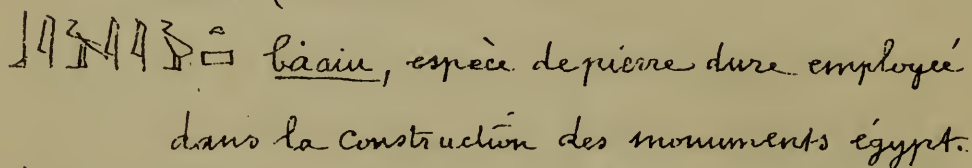 bàaiu, espèce de pierre dure employée
dans la construction des monuments égypt.